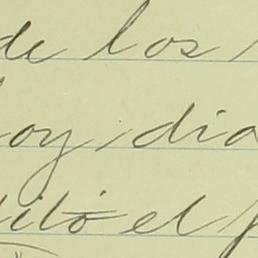 de los
oy dia
titó el